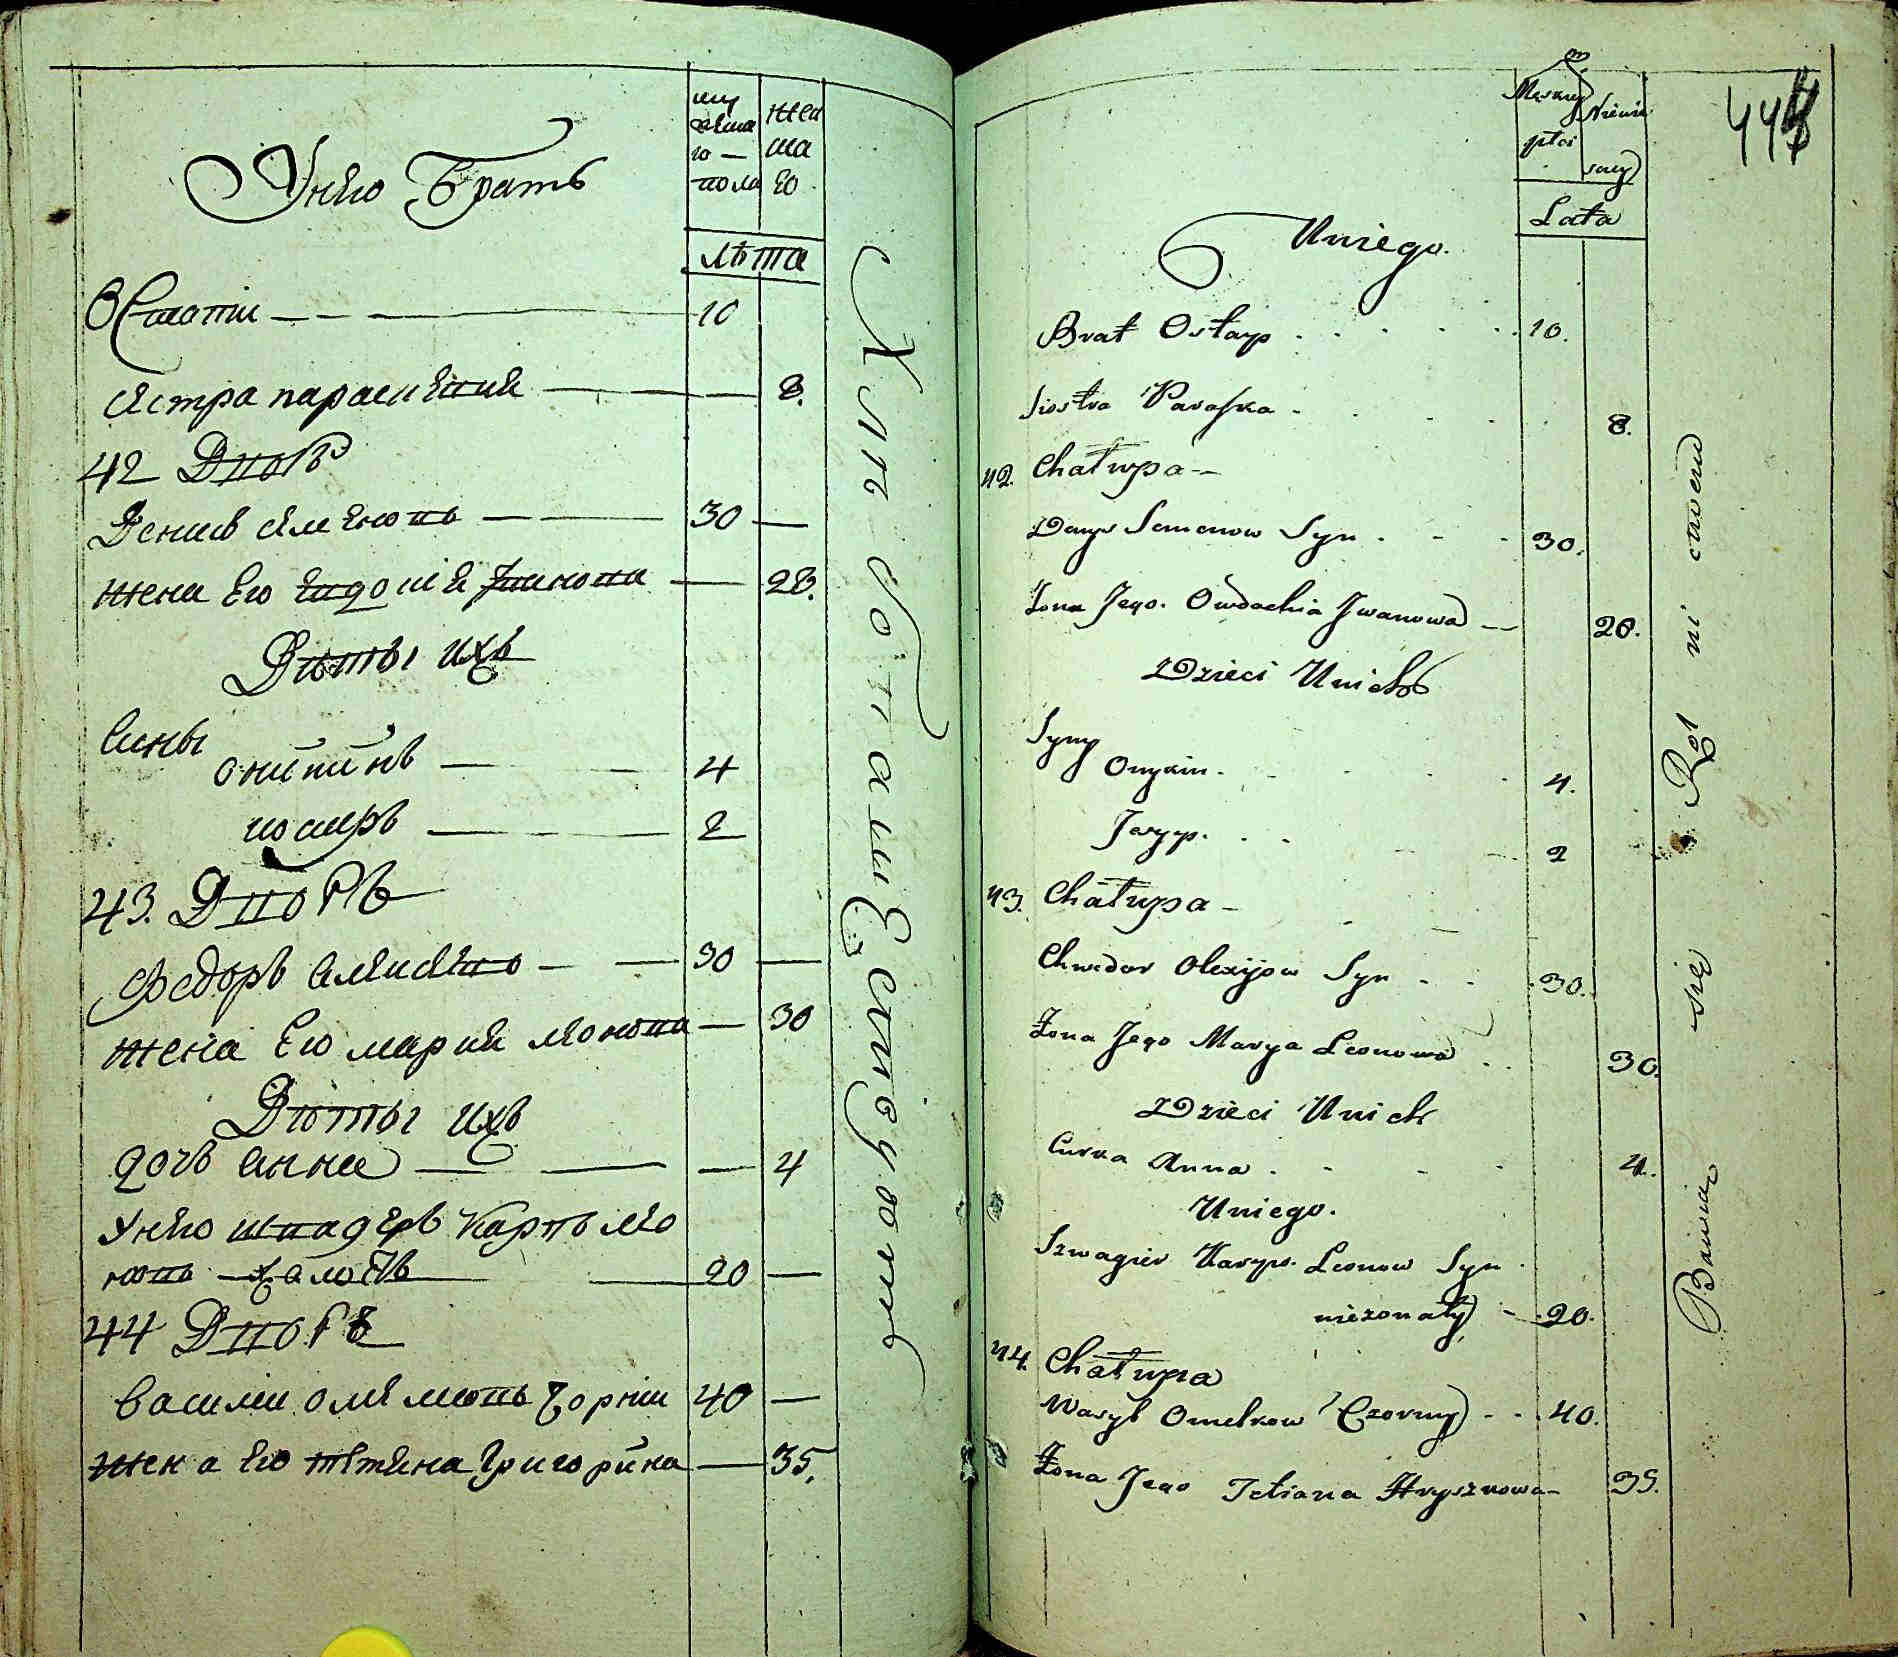 му
жеска
го —
пола
жен
ска
го
лѣта
Унего Братъ
Остапъ — 10
сестра параскевия — 8.
42 Дворъ
Денис Семеновъ — 30 —
жена Его Евдокия Иванова — 28.
Дѣти ихъ
Сины
Оникий — 4
иосипъ — 2
43. Дворъ
Федоръ Алексеевъ — 30 —
жена Его мария леонова — 30
Дѣти ихъ
дочь анна — 4
Унего швагеръ Карпъ лео
новъ — холостъ 20 —
44 Дворъ
василий омелковъ Чорний 40 —
жена Его тетяна Григорйва — 35.
Хлѣбопашествуютъ
Męskiey
płci
Niewie
sciey
Lata
447
Uniego.
Brat Ostap . . . . 10.
Siostra Paraska - . . . 8.
42. Chałupa -
Denys Semenow Syn . - - 30.
Żona Jego. Owdochia Jwanowa — 28.
Dzieci Unich
Syny
Onyкiy . . . 4.
Josyp. . . 2
43. Chałupa -
Chwedor Olexijow Syn . . 30.
Żona Jego Marya Leonowa . . 30.
Dzieci Unich
Curka Anna . . . 4.
Uniego.
Szwagier Karyp. Leonow Syn .
nieżonaty - . 20.
44. Chałupa
Wasyl Omelkow Czorny - . . 40.
Żona Jego Tetiana Hryszkowa - 35.
Bawią się Rol ni ctwem